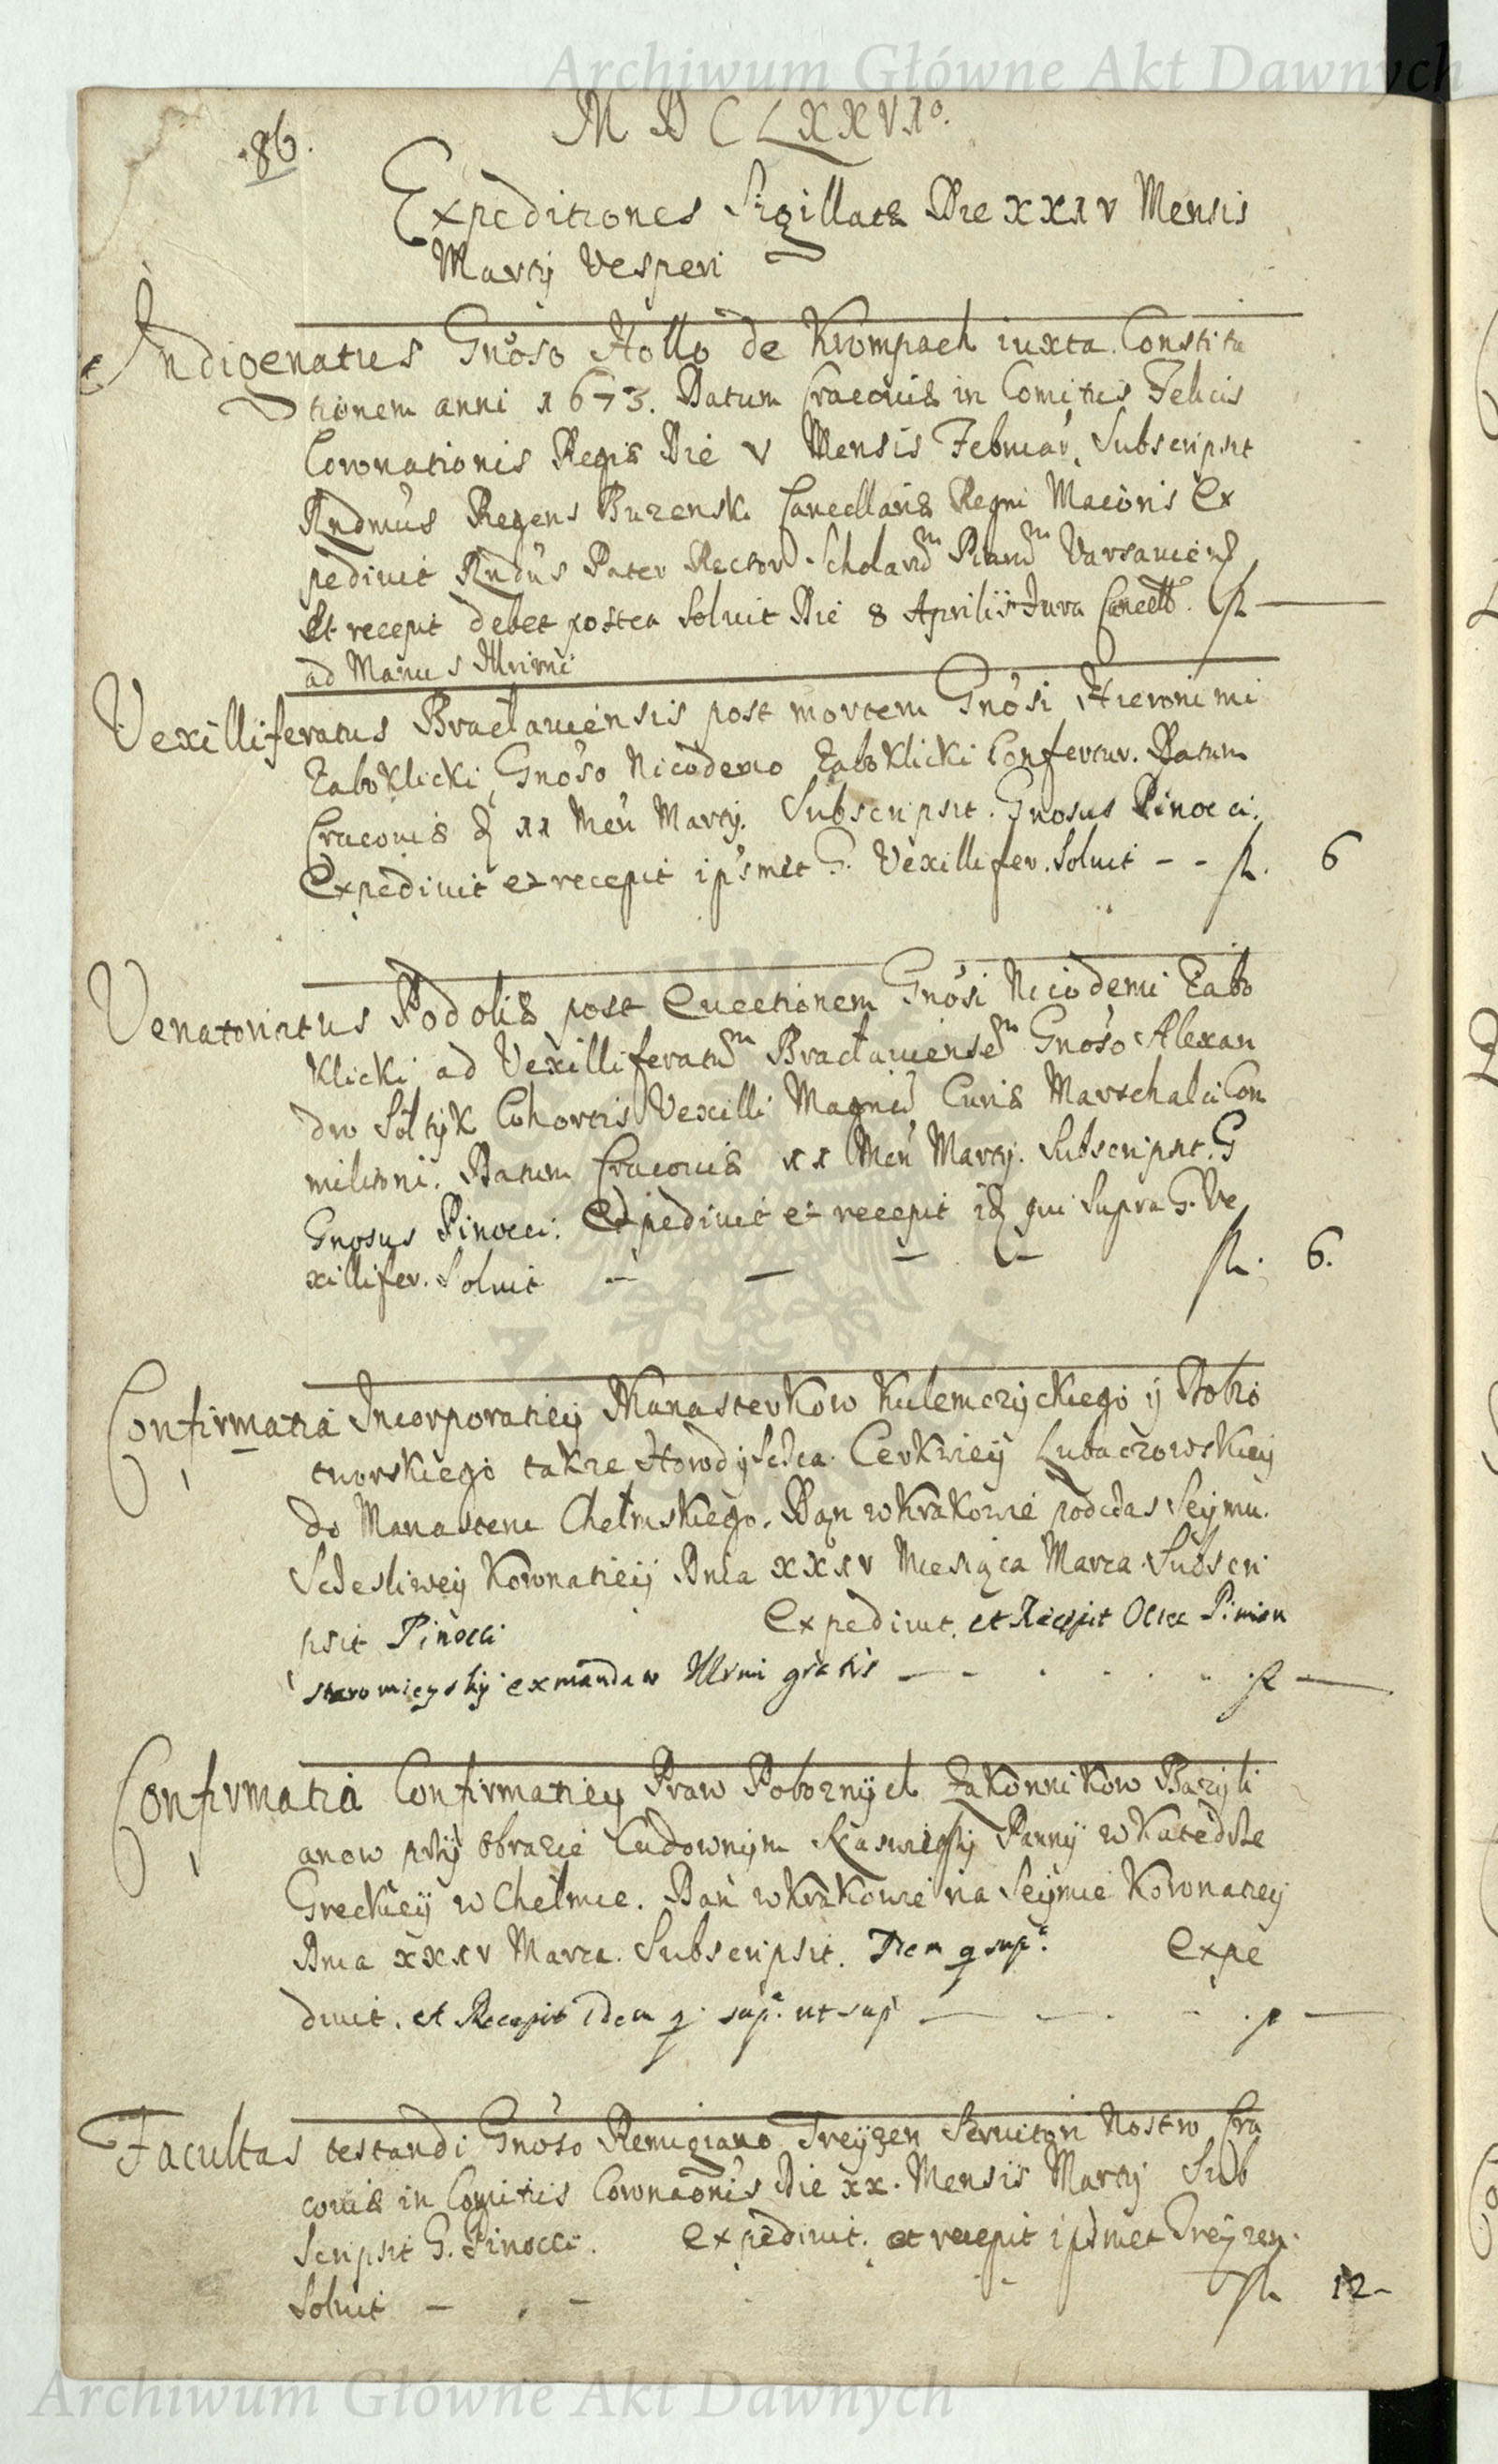 Archiwum Główne Akt Dawnych
MDCLXXVIo.
.86.
Expeditiones Sigillatæ Die XXIV Mensis
Martij Vesperi
Indigenatus Gnoso Hollo de Krompach iuxta Constitu
tionem anni 1673. Datum Cracoviæ in Comitiis Felicis
Coronationis Regiæ Die V Mensis Februar, Subscripsit
Rndmus Regens Burenski Cancellariæ Regni Maioris Ex
pedivit Rndus Pater Rector Scholarum Piarum Varsavien
Et recepit debet postea Soluit Die 8 Aprilis Jura Cancell. fl —
ad Manus Illrimi
Vexilliferatus Bracłauiensis post mortem Gnosi Hieronimi
Zaboklicki, Gnoso Nicodemo Zaboklicki Confertur. Datum
Cracoviæ d 11 Men Martij. Subscripsit. Gnosus Pinocci.
Expediuit et recepit ipsmet G. Vexillifer. Soluit - - fl. 6
Venatoriatus Podoliæ post Euectionem Gnosi Nicodemi Zabo
klicki ad Vexilliferatum Bracłauiensem Gnoso Alexan
dro Sołtyk Cohortis Vexilli Magni Curiæ Marschalci Com
militoni. Datum Cracoviæ 11 Men Martij. Subscripsit. G
Gnosus Pinocci. Expediuit et recepit id qui supra G. Ve
xillifer. Soluit — — — — fl. 6.
Confirmatia Incorporatiey Manasterkow Kulemczyckiego ÿ Dobro
tworskiego takze Horodyscza Cerkwieÿ Lubaczowskieÿ
do Manasteru Chełmskiego. Dan w Krakowie podczas Seÿmu
Sczesliweÿ Koronatieÿ Dnia XXIV Miesiąca Marca Subscri
psit Pinocci Expediuit. et Recepit Ociec Pimien
Staromieyskij ex mandaw Illrmi gratis — - . . . . . fl —
Confirmatia Confirmatiey Praw Poboznÿch Zakonnikow Bazÿli
anow przÿ obrazie Cudownÿm Naswietszÿ Pannÿ w Katedrze
Greckieÿ w Chełmie. Dan w Krakowie na Seÿmie Koronatiey
Dnia XXIV Marca. Subscripsit. Idem q supa. Expe
diuit. et Recepit idem q. supa. ut supa — - . - . fl —
Facultas testandi Gnoso Remigiano Treÿzen Seruitori Nostro Cra
coviæ in Comitiis Coronaonis Die XX. Mensis Martij Sub
Scripsit G. Pinocci. Expediuit. et recepit ipsmet Treÿzen.
Soluit — . — fl 12-
Archiwum Główne Akt Dawnych